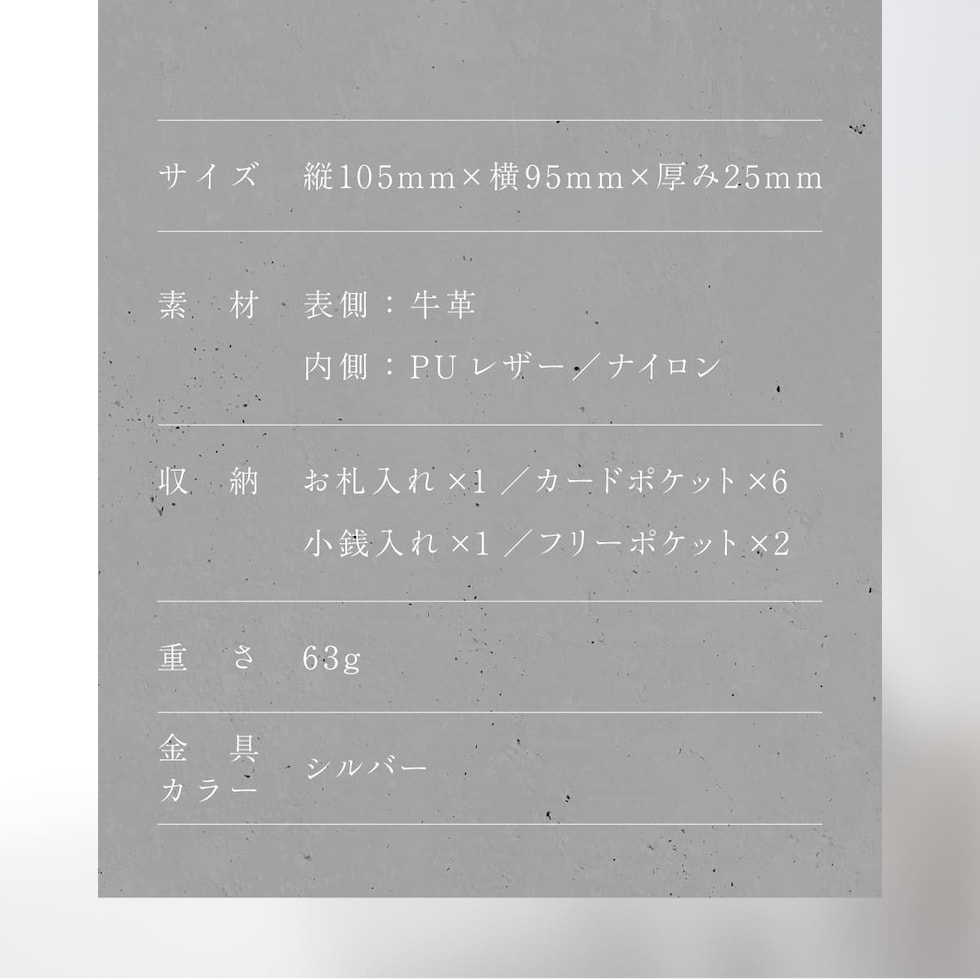 サイズ 縦105mm×横95mm×厚み25mm
素材 表側：牛革
内側：PUレザー／ナイロン
収納 お札入れ×1／カードポケット×6
小銭入れ×1／フリーポケット×2
重さ 63g
金具
カラー シルバー